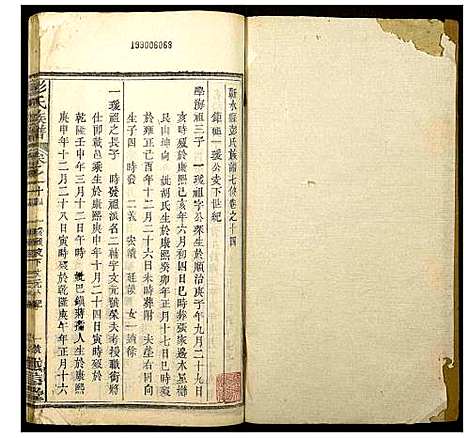 199006068
蘄水縣彭氏族譜七修卷之十四
鍾祖一瑗公支下世紀
學海祖三子　一瑗祖字公采生於順治庚子年九月二十九日
亥時歿於康熙己亥年六月初四日巳時葬張家邊木星桥
艮山坤向　姚胡氏生於康熙癸卯年正月十七日巳時歿
於雍正己酉年十二月二十六日未時葬附　夫塋右同向
生子四　時發　二　宏續　廷議　女一適徐
一瑗祖之長子　時發祖派名二　字文元號榮夫考授職銜將
仕郎載邑乘生於康熙庚申年十月二十四日寅時歿於
乾隆壬申年三月十二日午時　生於康熙
庚申年十二月二十八日寅時歿於乾隆庚午年正月十六
彭氏族譜
卷之十四